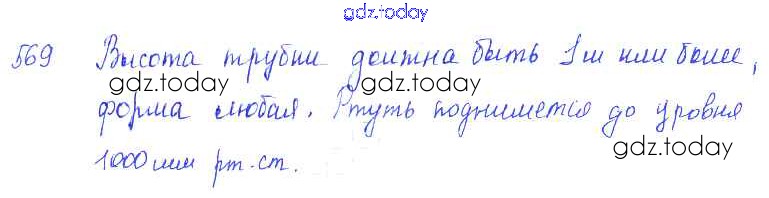 gdz.today
569 Высота трубки должна быть 1м или более,
gdz.today
форма любая. Ртуть поднимется до уровня
gdz.today
1000 мм рт.ст.
gdz.today